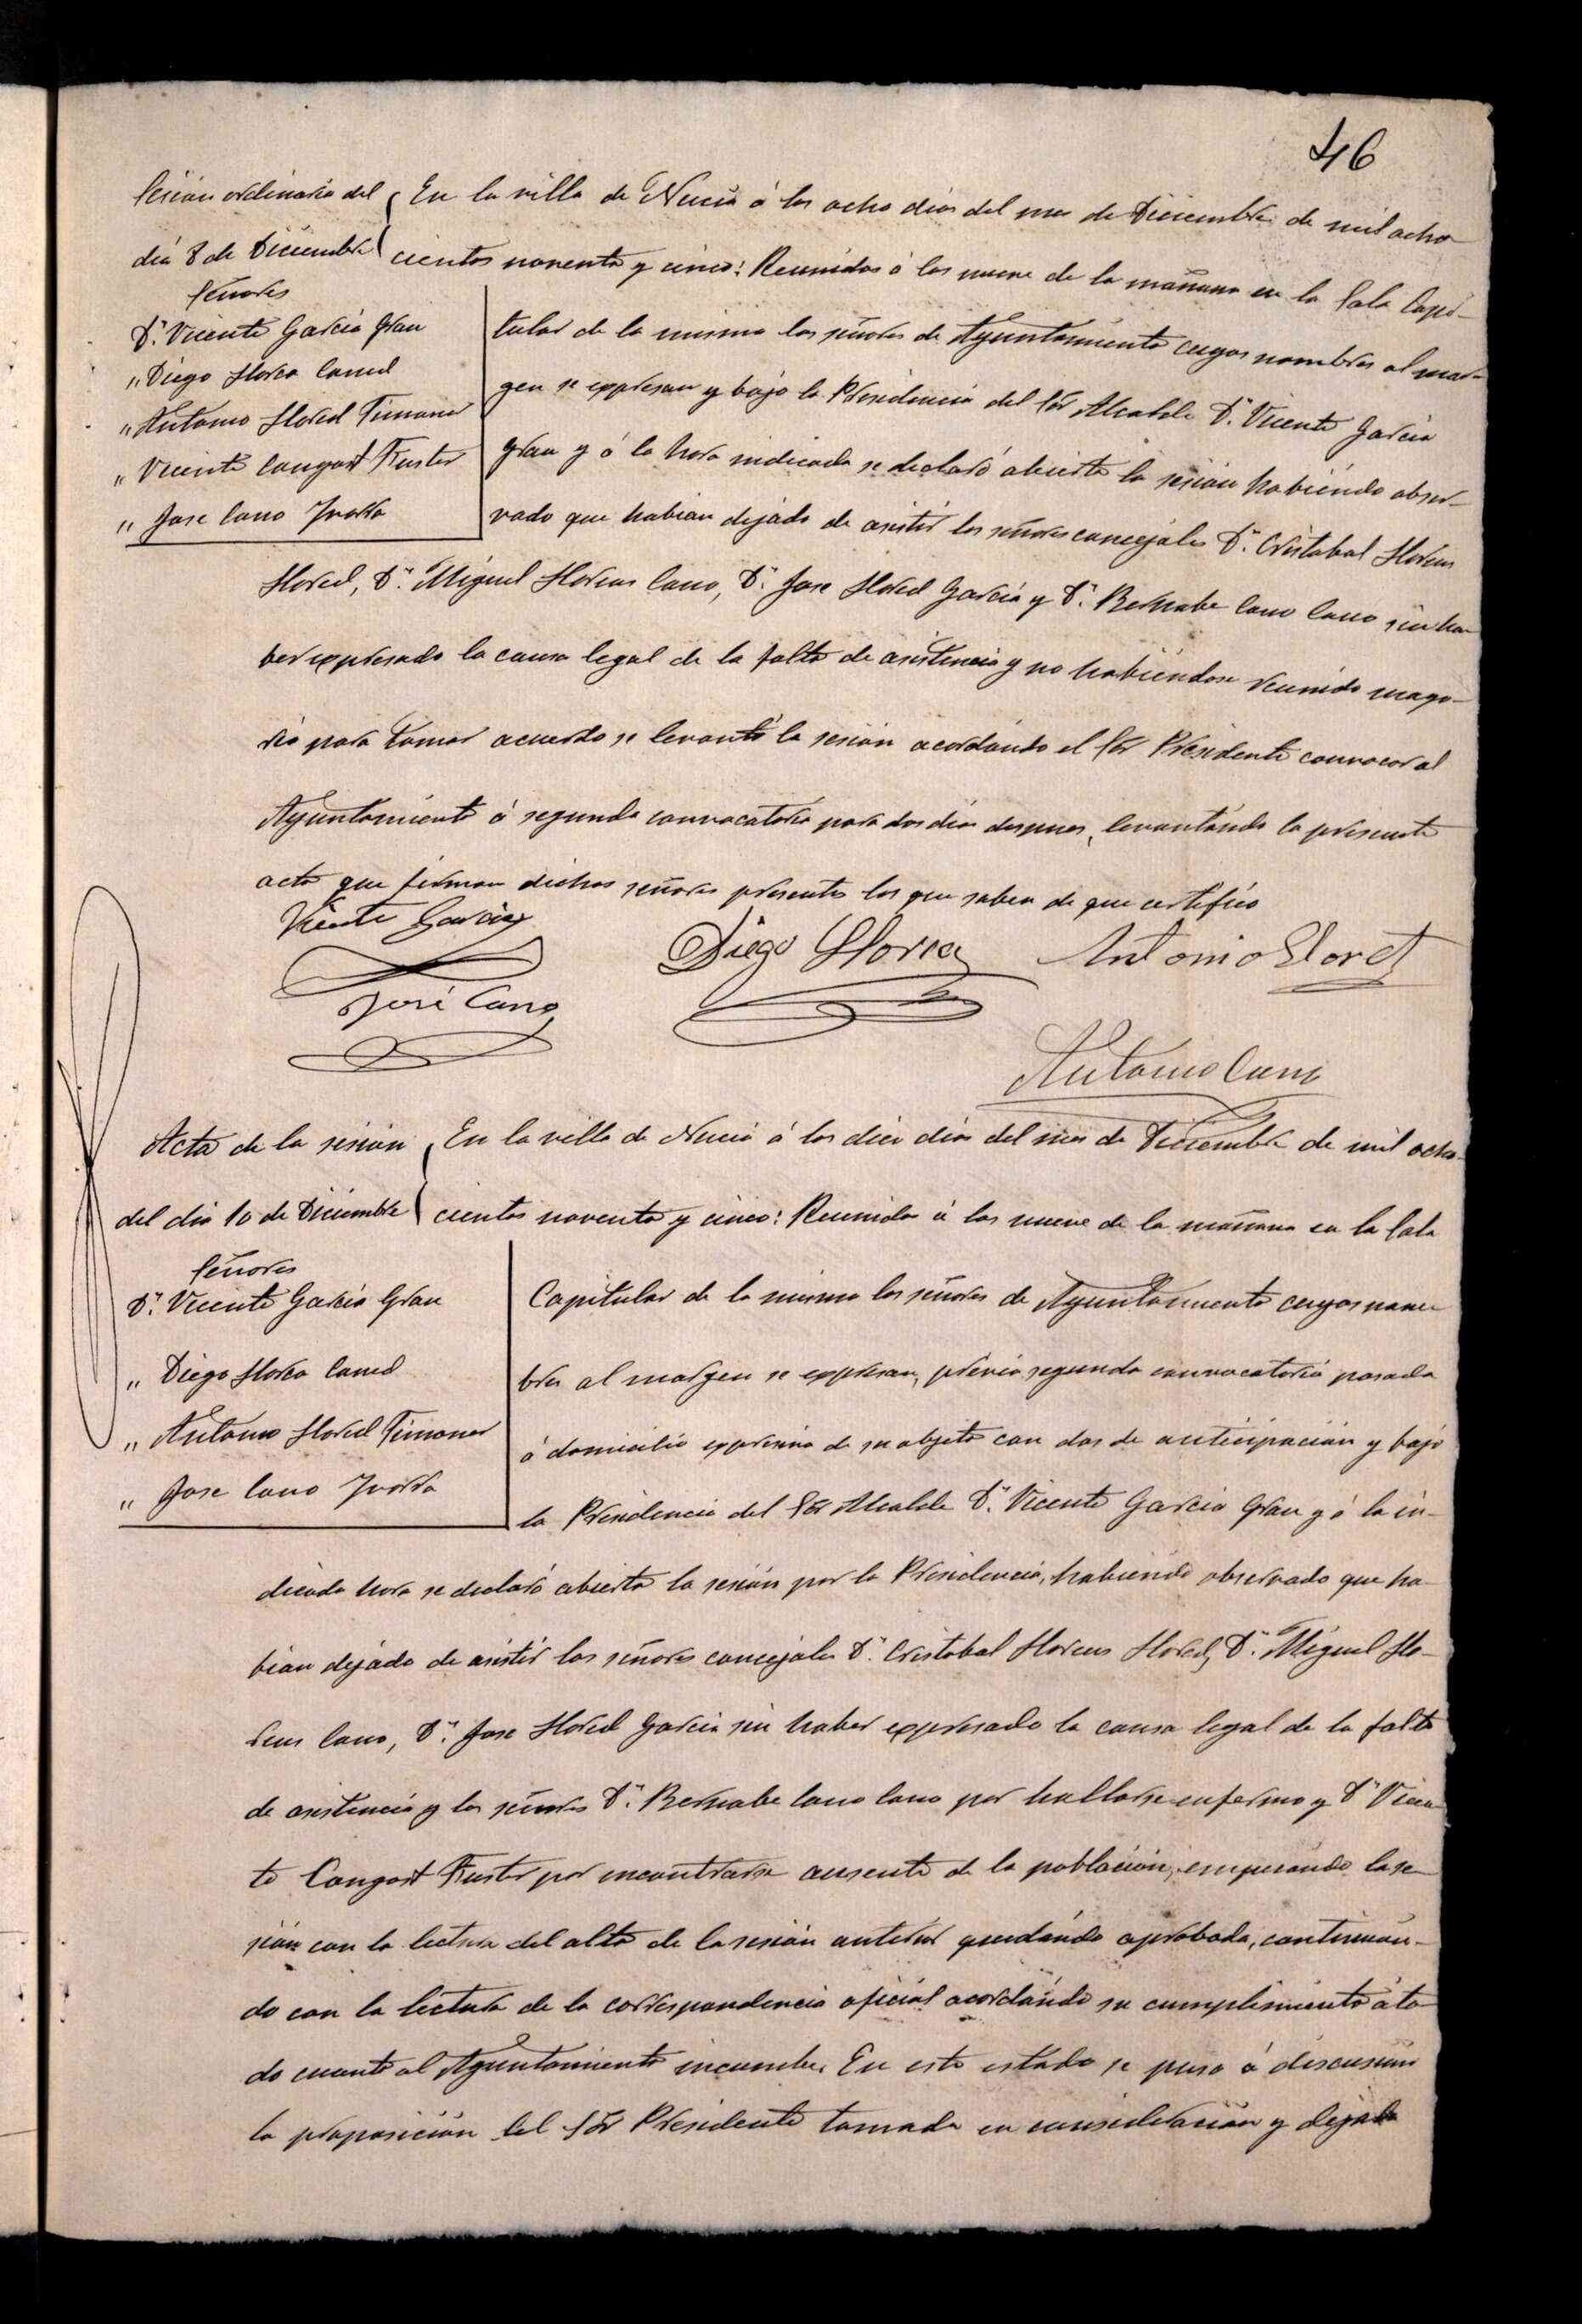 46
Sesión ordinaria del
dia 8 de Diciembre
Señores
Dn. Vicente Garcia Grau
" Diego Llorca Lanud
" Antonio Lloret Timoner
" Vicente Congost Fuster
" Jose Cano Yvorra
En la villa de Nucia á los ocho dias del mes de Diciembre de mil ocho-
cientos noventa y cinco: Reunidos á las nueve de la mañana en la Sala Capi-
tular de la misma los señores de Ayuntamiento cuyos nombres al mar-
gen se expresan y bajo la Presidencia del Sor Alcalde Dn. Vicente Garcia
Grau y á la hora indicada se declaró abierta la sesión habiéndo obser-
vado que habian dejado de asistir los señores concejales Dn. Cristobal Llorens
Lloret, Dn. Miguel Llorens Cano, Dn. Jose Lloret Garcia y Dn. Bernabe Cano Cano sin ha-
ber expresado la causa legal de la falta de asistencia y no habiéndose reunido mayo-
ria para tomar acuerdo se levantó la sesión acordándo el Sor Presidente convocar al
Ayuntamiento á segunda convocatoria para dos dias despues, levantándo la presente
acta que firman dichos señores presentes los que saben de que certifico
Vicente Garcia
Diego Llorca
Antonio Lloret
José Cano
Antonio Cano
Acta de la sesión
del dia 10 de Diciembre
Señores
Dn. Vicente Garcia Grau
" Diego Llorca Lanud
" Antonio Lloret Timoner
" Jose Cano Yvorra
En la villa de Nucia á los diez dias del mes de Diciembre de mil ocho-
cientos noventa y cinco: Reunidos á las nueve de la mañana en la Sala
Capitular de la misma los señores de Ayuntamiento cuyos nom-
bres al margen se expresan, prévia segunda convocatoria pasada
á domicilio expresiva de su objeto con dos de anticipación y bajo
la Presidencia del Sor Alcalde Dn. Vicente Garcia Grau y á la in-
dicada hora se declaró abierta la sesión por la Presidencia, habiéndo observado que ha-
bian dejado de asistir los señores concejales Dn. Cristobal Llorens Lloret, Dn. Miguel Llo-
rens Cano, Dn. Jose Lloret Garcia sin haber expresado la causa legal de la falta
de asistencia y los señores Dn. Bernabe Cano Cano por hallarse enfermo y Dn Vicen-
te Congost Fuster por encontrarse ausente de la población, empezándo la se-
sión con la lectura del alta de la sesión anterior quedándo aprobada, continuan-
do con la lectura de la correspondencia oficial acordándo su cumplimiento á to-
do cuanto al Ayuntamiento incumbe. En este estado se puso á discusión
la proposición del Sor Presidente tomada en consideración y dejada